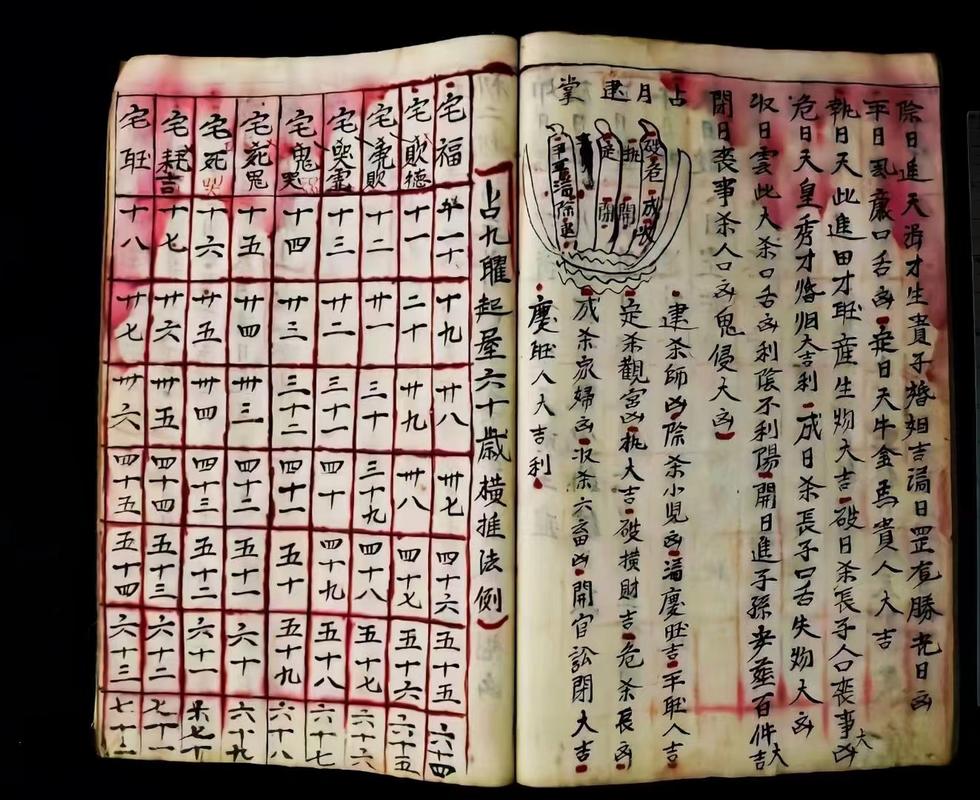 除日進天湒才生貴子婚姻吉滿日罡宛勝光日凶
平日虱痲口舌凶定日天牛金馬貴人大吉
執日天此進田才旺産生物大吉破日杀長子人口喪事凶大
危日天皇秀才婚旧大吉利成日杀長子口舌失物大凶
収日雲此大杀口舌凶利陰不利陽開日進子孫百件大吉
閉日喪事杀人口凶鬼侵大凶
占月建掌
建杀師凶除杀小児凶滿慶旺吉平旺人吉
定杀觀宮凶執大吉破横財吉危杀長凶
成杀家婦凶収杀六畜凶開官訟閉大吉
慶旺人大吉利
占九曜起屋六十歳横推法例
宅福 十一十 十九 廿八 卅七 四十六 五十五 六十四
宅歎德 十一 二十 廿九 卅八 四十七 五十六 六十五
宅虎歎 十二 廿一 三十 三十九 四十八 五十七 六十六
宅哭靈 十三 廿二 三十一 四十 四十九 五十八 六十七
宅鬼哭 十四 廿三 三十二 四十一 五十 五十九 六十八
宅死鬼 十五 廿四 卅三 四十二 五十一 六十 六十九
宅死 十六 廿五 卅四 四十三 五十二 六十一 七十
宅耗吉 十七 廿六 卅五 四十四 五十三 六十二 七十一
宅旺 十八 廿七 卅六 四十五 五十四 六十三 七十二